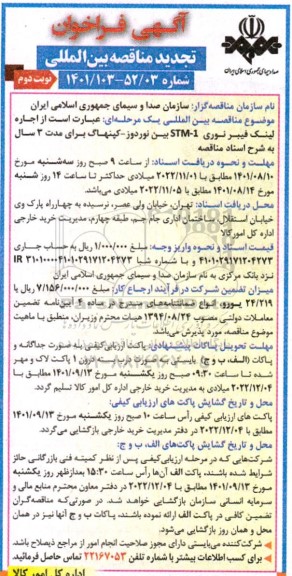 آگهی فراخوان
تجدید مناقصه بین المللی
شماره ۵۲/۰۳-۱۴۰۱/۱۰۳
نوبت دوم
نام سازمان مناقصه‌گزار: سازمان صدا و سیمای جمهوری اسلامی ایران
موضوع مناقصه بین المللی یک مرحله‌ای: عبارت است از اجاره
لینک فیبر نوری STM-1 بین نوردوز-کپنهاگ برای مدت ۳ سال
به شرح اسناد مناقصه
مهلت و نحوه دریافت اسناد: از ساعت ۹ صبح روز سه‌شنبه مورخ
۱۴۰۱/۰۸/۱۰ مطابق با ۲۰۲۲/۱۱/۰۱ میلادی حداکثر تا ساعت ۱۴ روز شنبه
مورخ ۱۴۰۱/۰۸/۱۴ مطابق با ۲۰۲۲/۱۱/۰۵ میلادی می‌باشد.
محل دریافت اسناد: تهران، خیابان ولی عصر، نرسیده به چهارراه پارک وی
خیابان استقلال، ساختمان اداری جام جم، طبقه چهارم، مدیریت خرید خارجی
اداره کل امور کالا
قیمت اسناد و نحوه واریز وجه: مبلغ ۱/۰۰۰/۰۰۰ ریال به حساب جاری
۴۱۰۱۰۲۹۱۷۱۲۰۴۲۷۳ و با شماره شبا IR ۳۱۰۱۰۰۰۰۴۱۰۱۰۲۹۱۷۱۲۰۴۲۷۳
نزد بانک مرکزی به نام سازمان صدا و سیمای جمهوری اسلامی ایران
میزان تضمین شرکت در فرآیند ارجاع کار: مبلغ ۷/۱۵۶/۰۰۰/۰۰۰ ریال یا
۲۴/۲۱۹ یورو، انواع ضمانتنامه‌های مندرج در ماده ۴ آیین‌نامه تضمین
معاملات دولتی مصوب ۱۳۹۴/۰۸/۲۴ هیات محترم وزیران، منطبق با ماهیت
موضوع مناقصه، مورد پذیرش می‌باشد.
مهلت تحویل پاکات پیشنهادی: پاکت ارزیابی کیفی به صورت جداگانه و
پاکات (الف، ب و ج) بایستی به صورت دربسته درون ۱ پاکت لاک و مهر
شده تا ساعت ۰۹:۳۰ صبح روز یکشنبه مورخ ۱۴۰۱/۰۹/۱۳ مطابق با
۲۰۲۲/۱۲/۰۴ میلادی به مدیریت خرید خارجی اداره کل امور کالا تسلیم گردد.
محل و تاریخ گشایش پاکت های ارزیابی کیفی:
پاکت های ارزیابی کیفی رأس ساعت ۱۰ صبح روز یکشنبه مورخ ۱۴۰۱/۰۹/۱۳
مطابق با ۲۰۲۲/۱۲/۰۴ در دفتر مدیریت خرید خارجی بازگشایی می‌گردد.
محل و تاریخ گشایش پاکت‌های الف، ب و ج:
شرکت‌هایی که در مرحله ارزیابی کیفی پس از نظر کمیته فنی بازرگانی حائز
شرایط شده باشند، پاکت الف آن‌ها رأس ساعت ۱۵:۳۰ بعدازظهر روز یکشنبه
مورخ ۱۴۰۱/۰۹/۱۳ مطابق با ۲۰۲۲/۱۲/۰۴ در دفتر معاون محترم منابع مالی و
سرمایه انسانی سازمان بازگشایی خواهد شد. در صورتی‌که مناقصه‌گران
تضمین کافی در پاکت الف ارائه نموده باشند، پاکات ب و ج آنها نیز در همان
محل و همان روز بازگشایی می‌شود.
شرکت‌کننده می‌بایستی دارای مجوز صلاحیت انجام امور از مراجع ذیصلاح باشد.
برای کسب اطلاعات بیشتر با شماره تلفن ۲۲۱۶۷۰۵۳ تماس حاصل فرمائید
اداره کل امور کالا